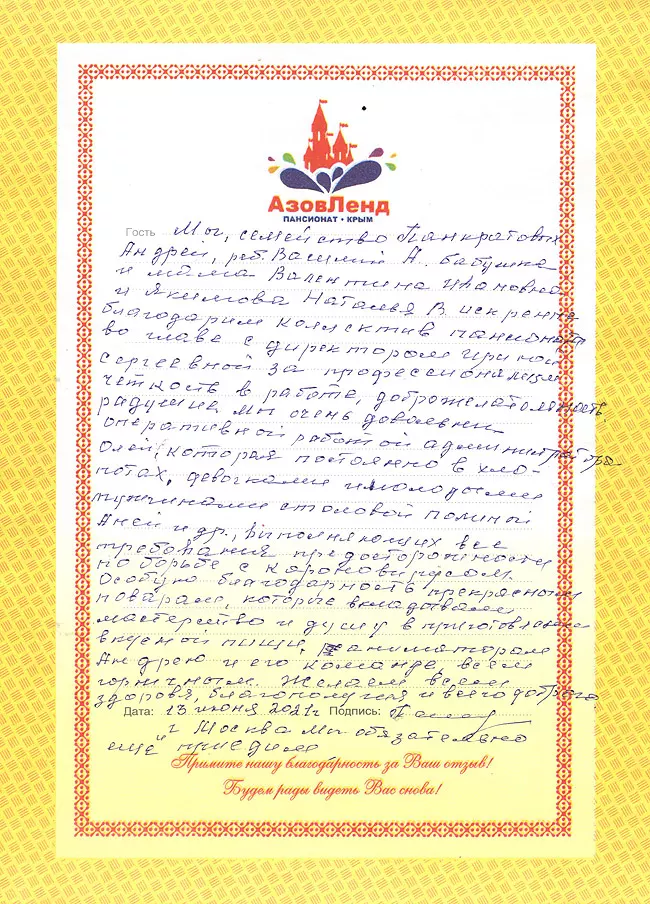 АзовЛенд
ПАНСИОНАТ • КРЫМ
Гость Мы, семейство Панкратовых
Андрей, реб. Василий А., бабушка
и мама Валентина Ивановна
и Якимова Наталья В. искренне
благодарим коллектив пансионата
во главе с директором Ириной
Сергеевной за профессионализм
чёткость в работе, доброжелательность,
радушие, мы очень довольны
оперативной работой администратора
Олей, которая постоянно в хло-
потах, девочками и молодыми
мужчинами столовой Полиной
Аней и др., выполняющих все
требования предосторожности
по борьбе с короновирусом.
Особую благодарность прекрасным
поварам, которые вкладывали
мастерство и душу в приготовлении
вкусной пищи, аниматорам
Андрею и его команде, всем
горничным. Желаем всем
здоровя, благополучия и всего доброго.
Дата: 13 июня 2021г Подпись:
г Москва Мы обязательно
ещё приедим
Примите нашу благодарность за Ваш отзыв!
Будем рады видеть Вас снова!